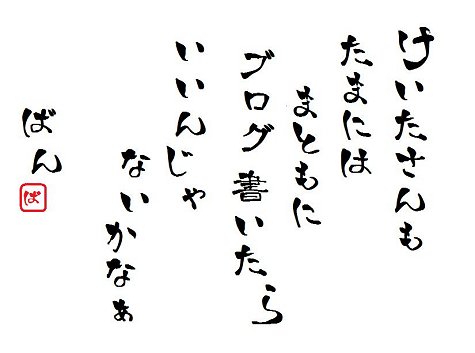 けいたさんも
たまには
まともに
ブログ書いたら
いいんじゃ
ないかなぁ
ばん
ば